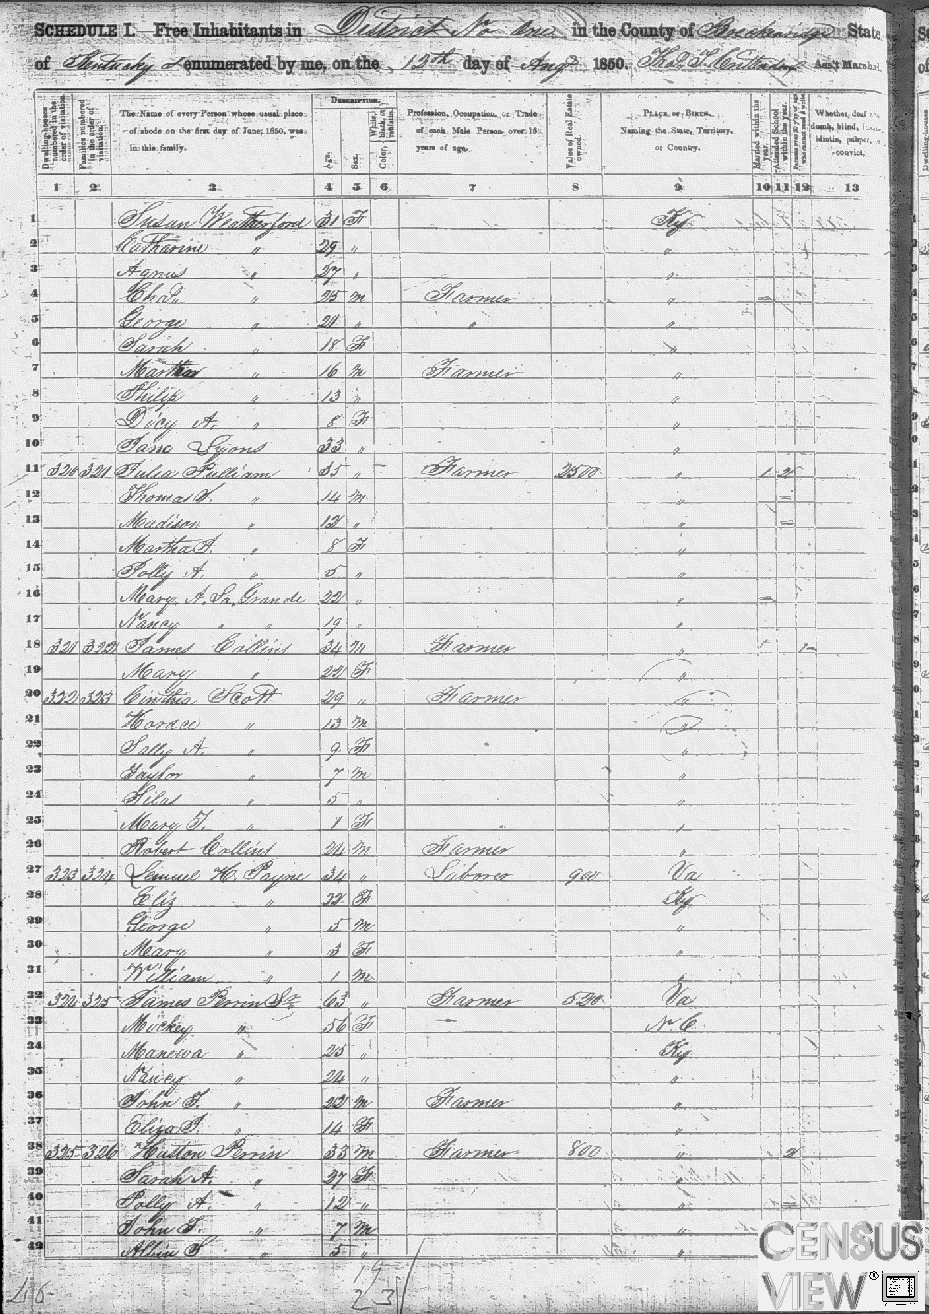 SCHEDULE I. Free Inhabitants in District No One in the County of Breckenridge State
of Kentucky enumerated by me, on the 12th day of Aug 1850. Ass't Marshal
Dwelling-houses numbered in the order of visitation.
Families numbered in the order of visitation.
The Name of every Person whose usual place of abode on the first day of June, 1850, was in this family.
Description.
Age.
Sex.
Color, White, black, or mulatto.
Profession, Occupation, or Trade of each Male Person over 15 years of age.
Value of Real Estate owned.
Place of Birth. Naming the State, Territory, or Country.
Married within the year.
Attended School within the year.
Whether deaf and dumb, blind, idiotic, pauper, or convict.
1 2 3 4 5 6 7 8 9 10 11 12 13
1 Susan Weatherford 31 F Ky
2 Catharine " 29 " "
3 Agnes " 27 " "
4 Chas " 25 m Farmer "
5 George " 21 " " "
6 Sarah " 18 F "
7 " 16 m Farmer "
8 Philip " 13 " "
9 Dicy A. " 8 F "
10 Jane Lyons 33 " "
11 320 321 Julia Pulliam 35 " Farmer 2500 " 1 2
12 Thomas J. " 14 m "
13 Madison " 12 " "
14 Martha J. " 8 F "
15 Polly A. " 5 " "
16 Mary A. La Grande 22 " "
17 Nancy " " 19 " "
18 321 322 James Collins 34 m Farmer " 1
19 Mary " 22 F "
20 322 323 Cinthia Scott 29 " Farmer "
21 Horace " 13 m "
22 Sally A. " 9 F "
23 Taylor " 7 m "
24 Silas " 5 " "
25 Mary F. " 1 F "
26 Robert Collins 24 m Farmer "
27 323 324 Lemuel H. Payne 34 " Laborer 900 Va
28 Eliz " 22 F Ky
29 George " 5 m "
30 Mary " 3 F "
31 William " 1 m "
32 324 325 James Perrin Sr 63 " Farmer 520 Va
33 Mickey " 56 F N. C.
34 " 25 " Ky
35 Nancy " 24 " "
36 John F. " 22 m Farmer "
37 Eliza J. " 14 F "
38 325 326 Huston Perrin 33 m Farmer 800 " 2
39 Sarah A. " 37 F "
40 Polly A. " 12 " "
41 John T. " 7 m "
42 " 5 " "
19
23
CENSUS
VIEW®